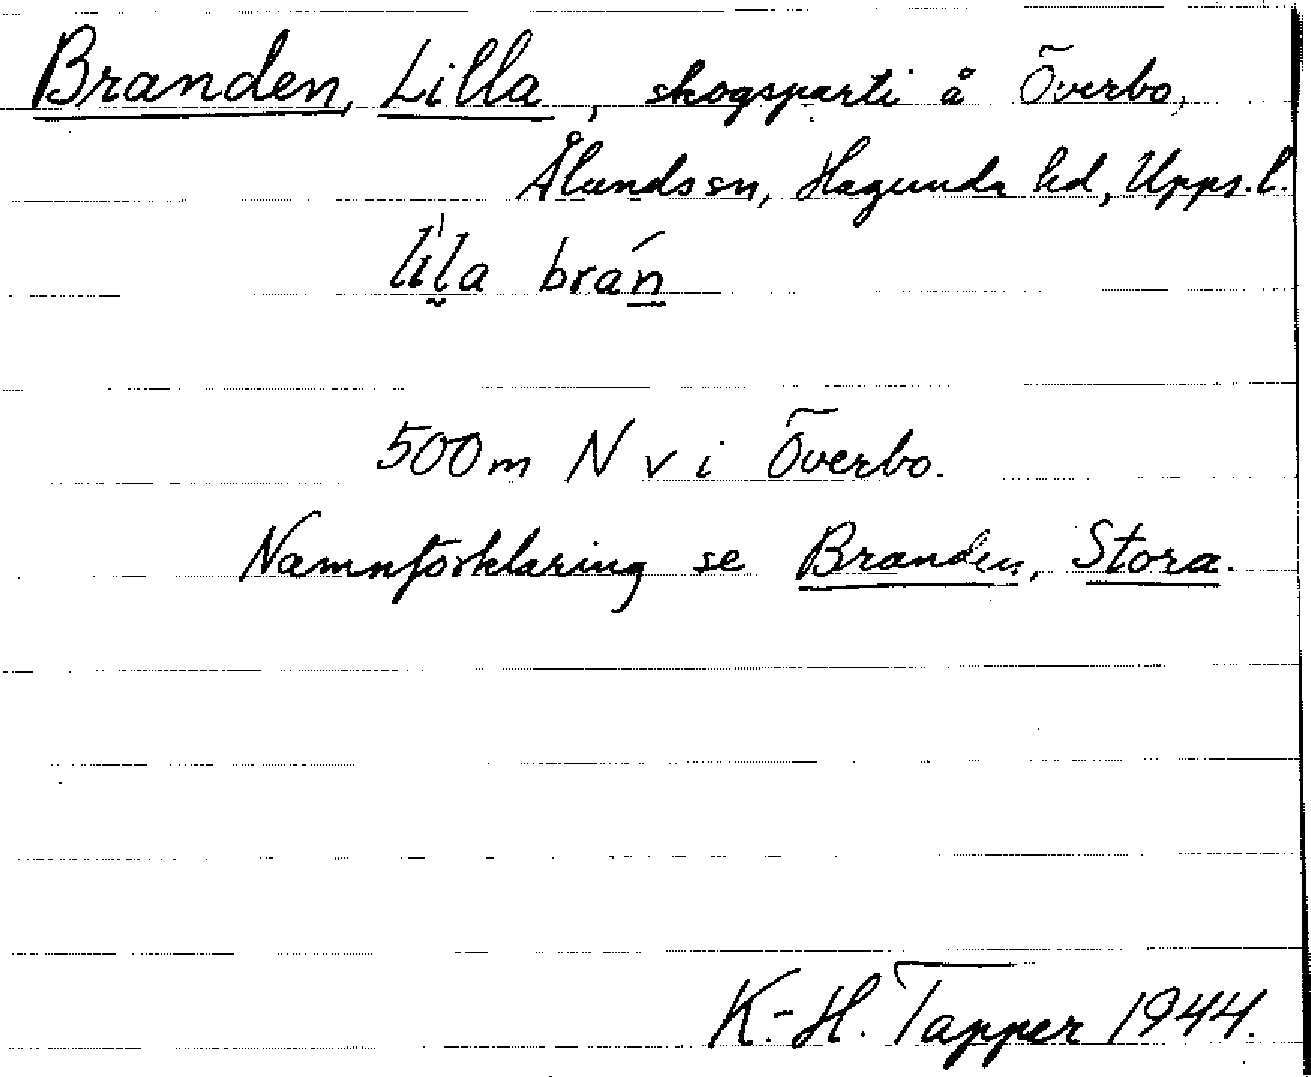 Branden, Lilla, skogsparti å Överbo,
Ålunds sn, Hagunda hd, Upps. l.
lil̰a brán̲
500 m N v i Överbo.
Namnförklaring se Branden, Stora.
K.-H. Tapper 1944.